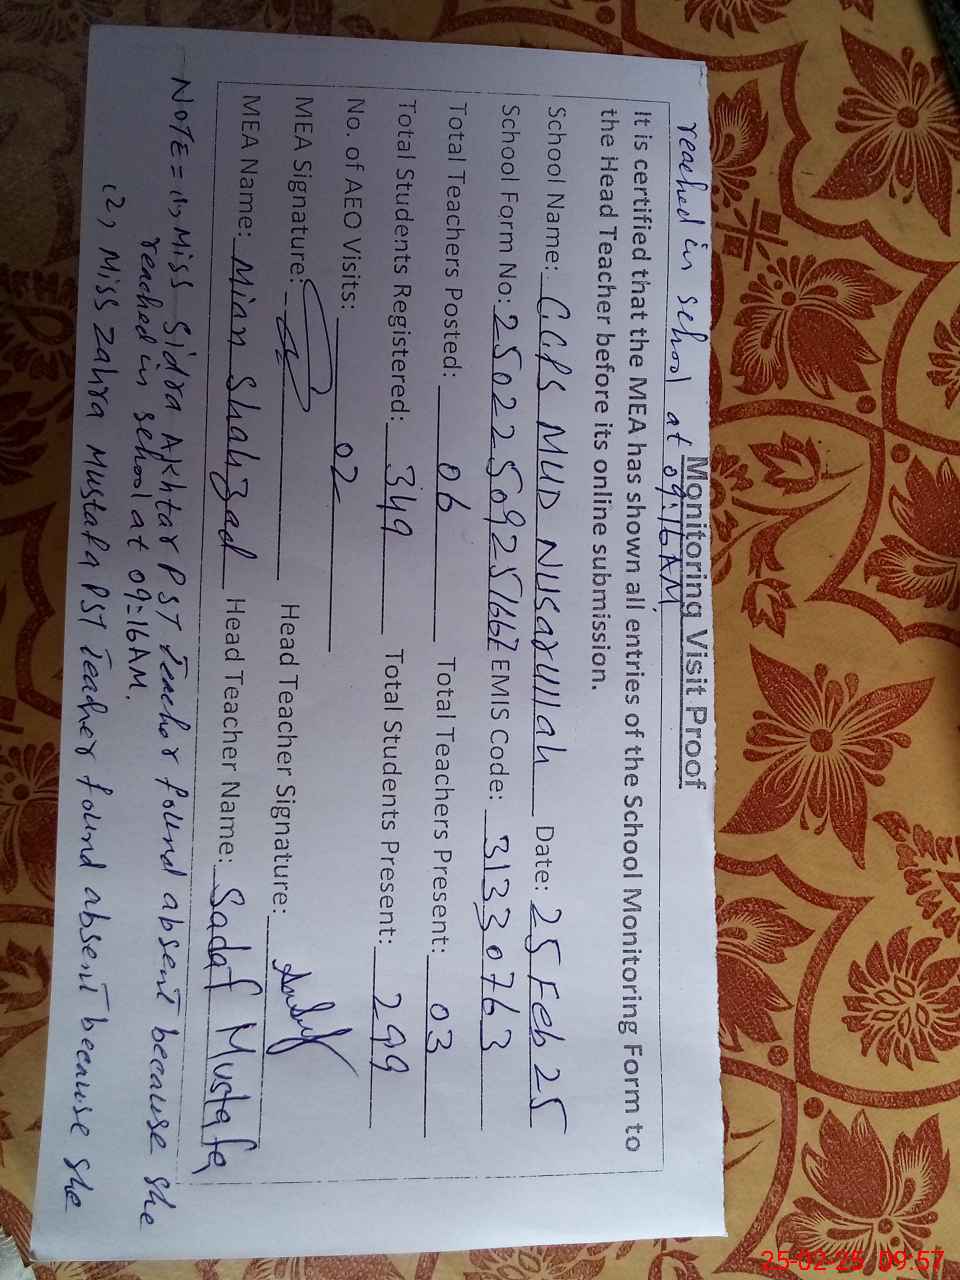 reached in school at 09:16 AM
Monitoring Visit Proof
It is certified that the MEA has shown all entries of the School Monitoring Form to
the Head Teacher before its online submission.
School Name: GGPS MUD NUSARULLAH Date: 25 Feb 25
School Form No: EMIS Code: 31330763
Total Teachers Posted: 06 Total Teachers Present: 03
Total Students Registered: 349 Total Students Present: 299
No. of AEO Visits: 02
MEA Signature: Head Teacher Signature:
MEA Name: Mian Shahzad Head Teacher Name: Sadaf Mustafa
NOTE = (1) Miss Sidra Akhtar PST Teacher found absent because she
reached in school at 09:16 AM.
(2) Miss Zahra Mustafa PST Teacher found absent because she
25-02-25 09:57